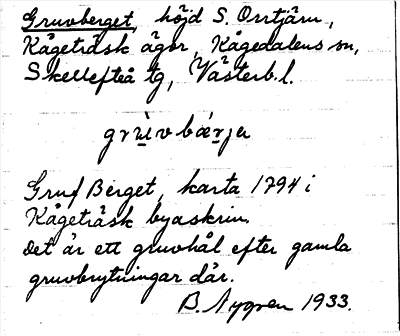 Gruvberget, höjd S. Orrtjärn,
Kågeträsk ägor, Kågedalens sn,
Skellefteå tg, Västerb. l.
Gruf Berget, karta 1794 i
Kågeträsk byaskrin.
Det är ett gruvhål efter gamla
gruvbrytningar där.
B. Nygren 1933.